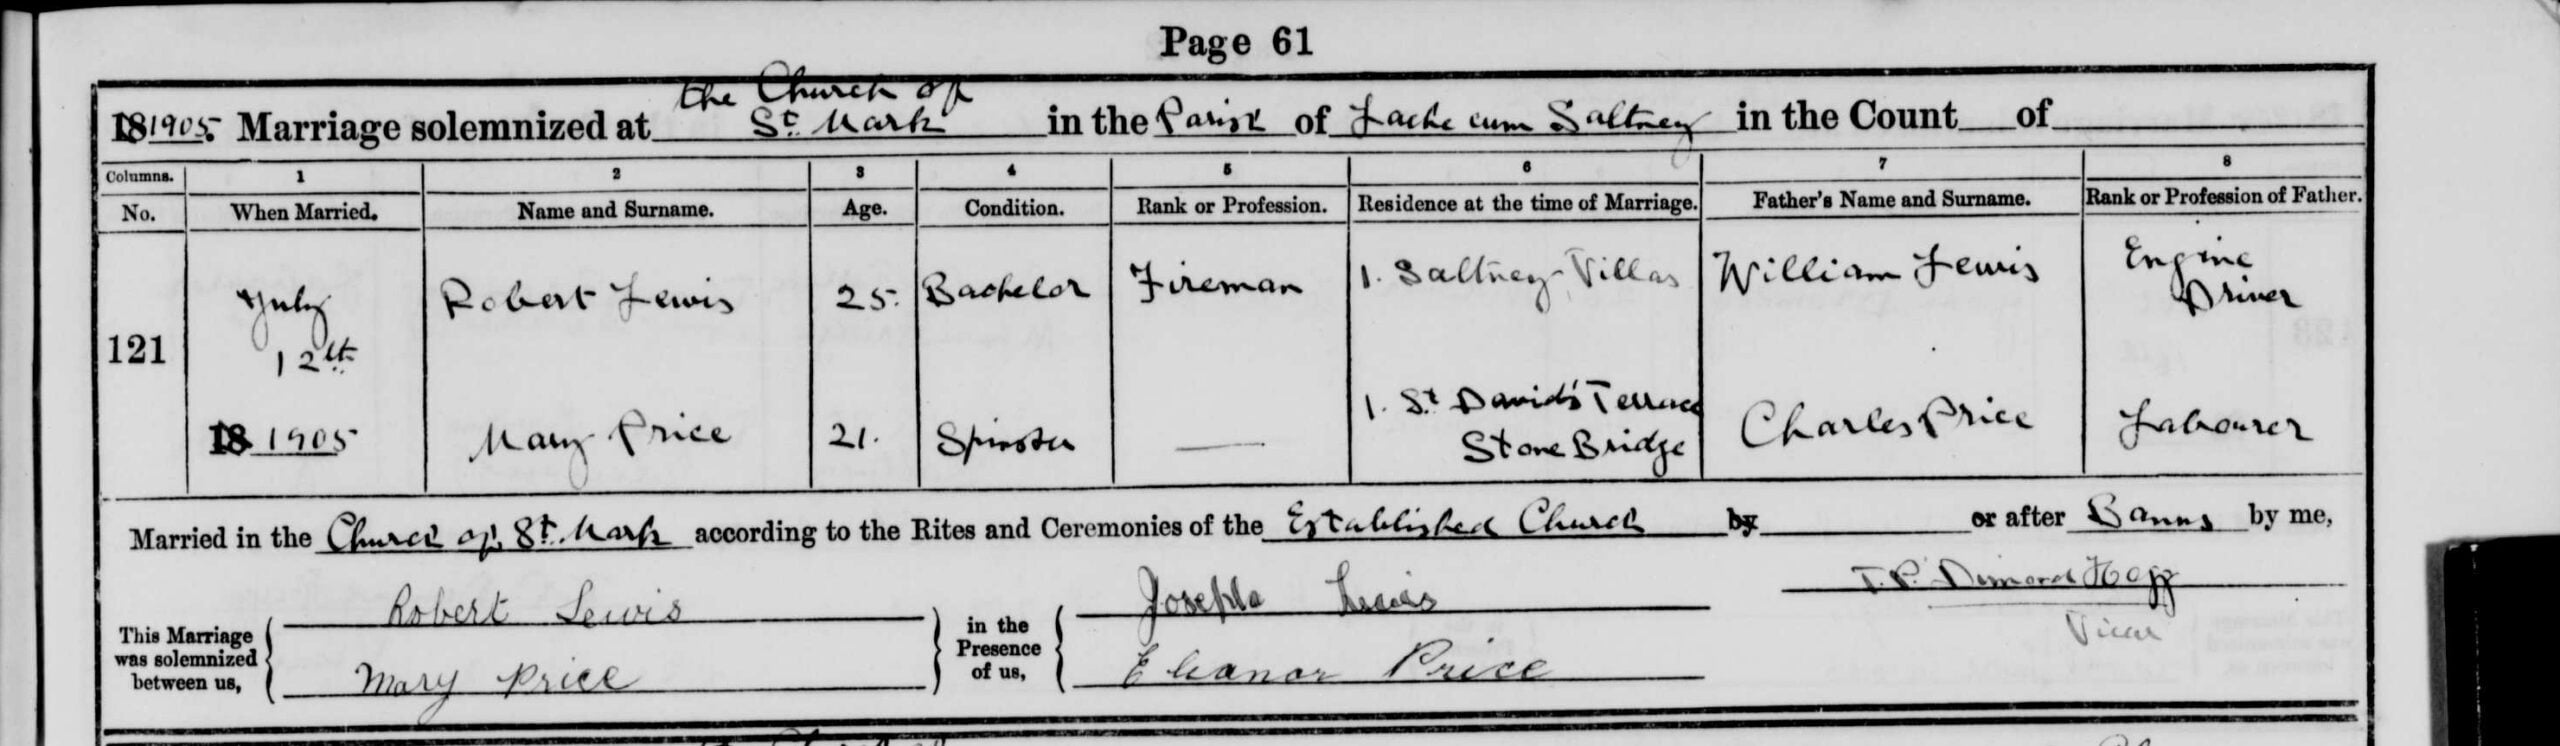 Page 61
the Church of
18 1905. Marriage solemnized at St. Mark in the Parish of Lache cum Saltney in the Count of
Columns. 1 2 3 4 5 6 7 8
No. When Married. Name and Surname. Age. Condition. Rank or Profession. Residence at the time of Marriage. Father's Name and Surname. Rank or Profession of Father.
121 July 12th 18 1905
Robert Lewis 25. Bachelor Fireman 1. Saltney Villas William Lewis Engine Driver
Mary Price 21. Spinster — 1. St David's Terrace Stone Bridge Charles Price Labourer
Married in the Church of St. Mark according to the Rites and Ceremonies of the Established Church by or after Banns by me,
This Marriage was solemnized between us, Robert Lewis Mary Price
in the Presence of us, Joseph Lewis Eleanor Price
T. P. Dimond Hogg
Vicar